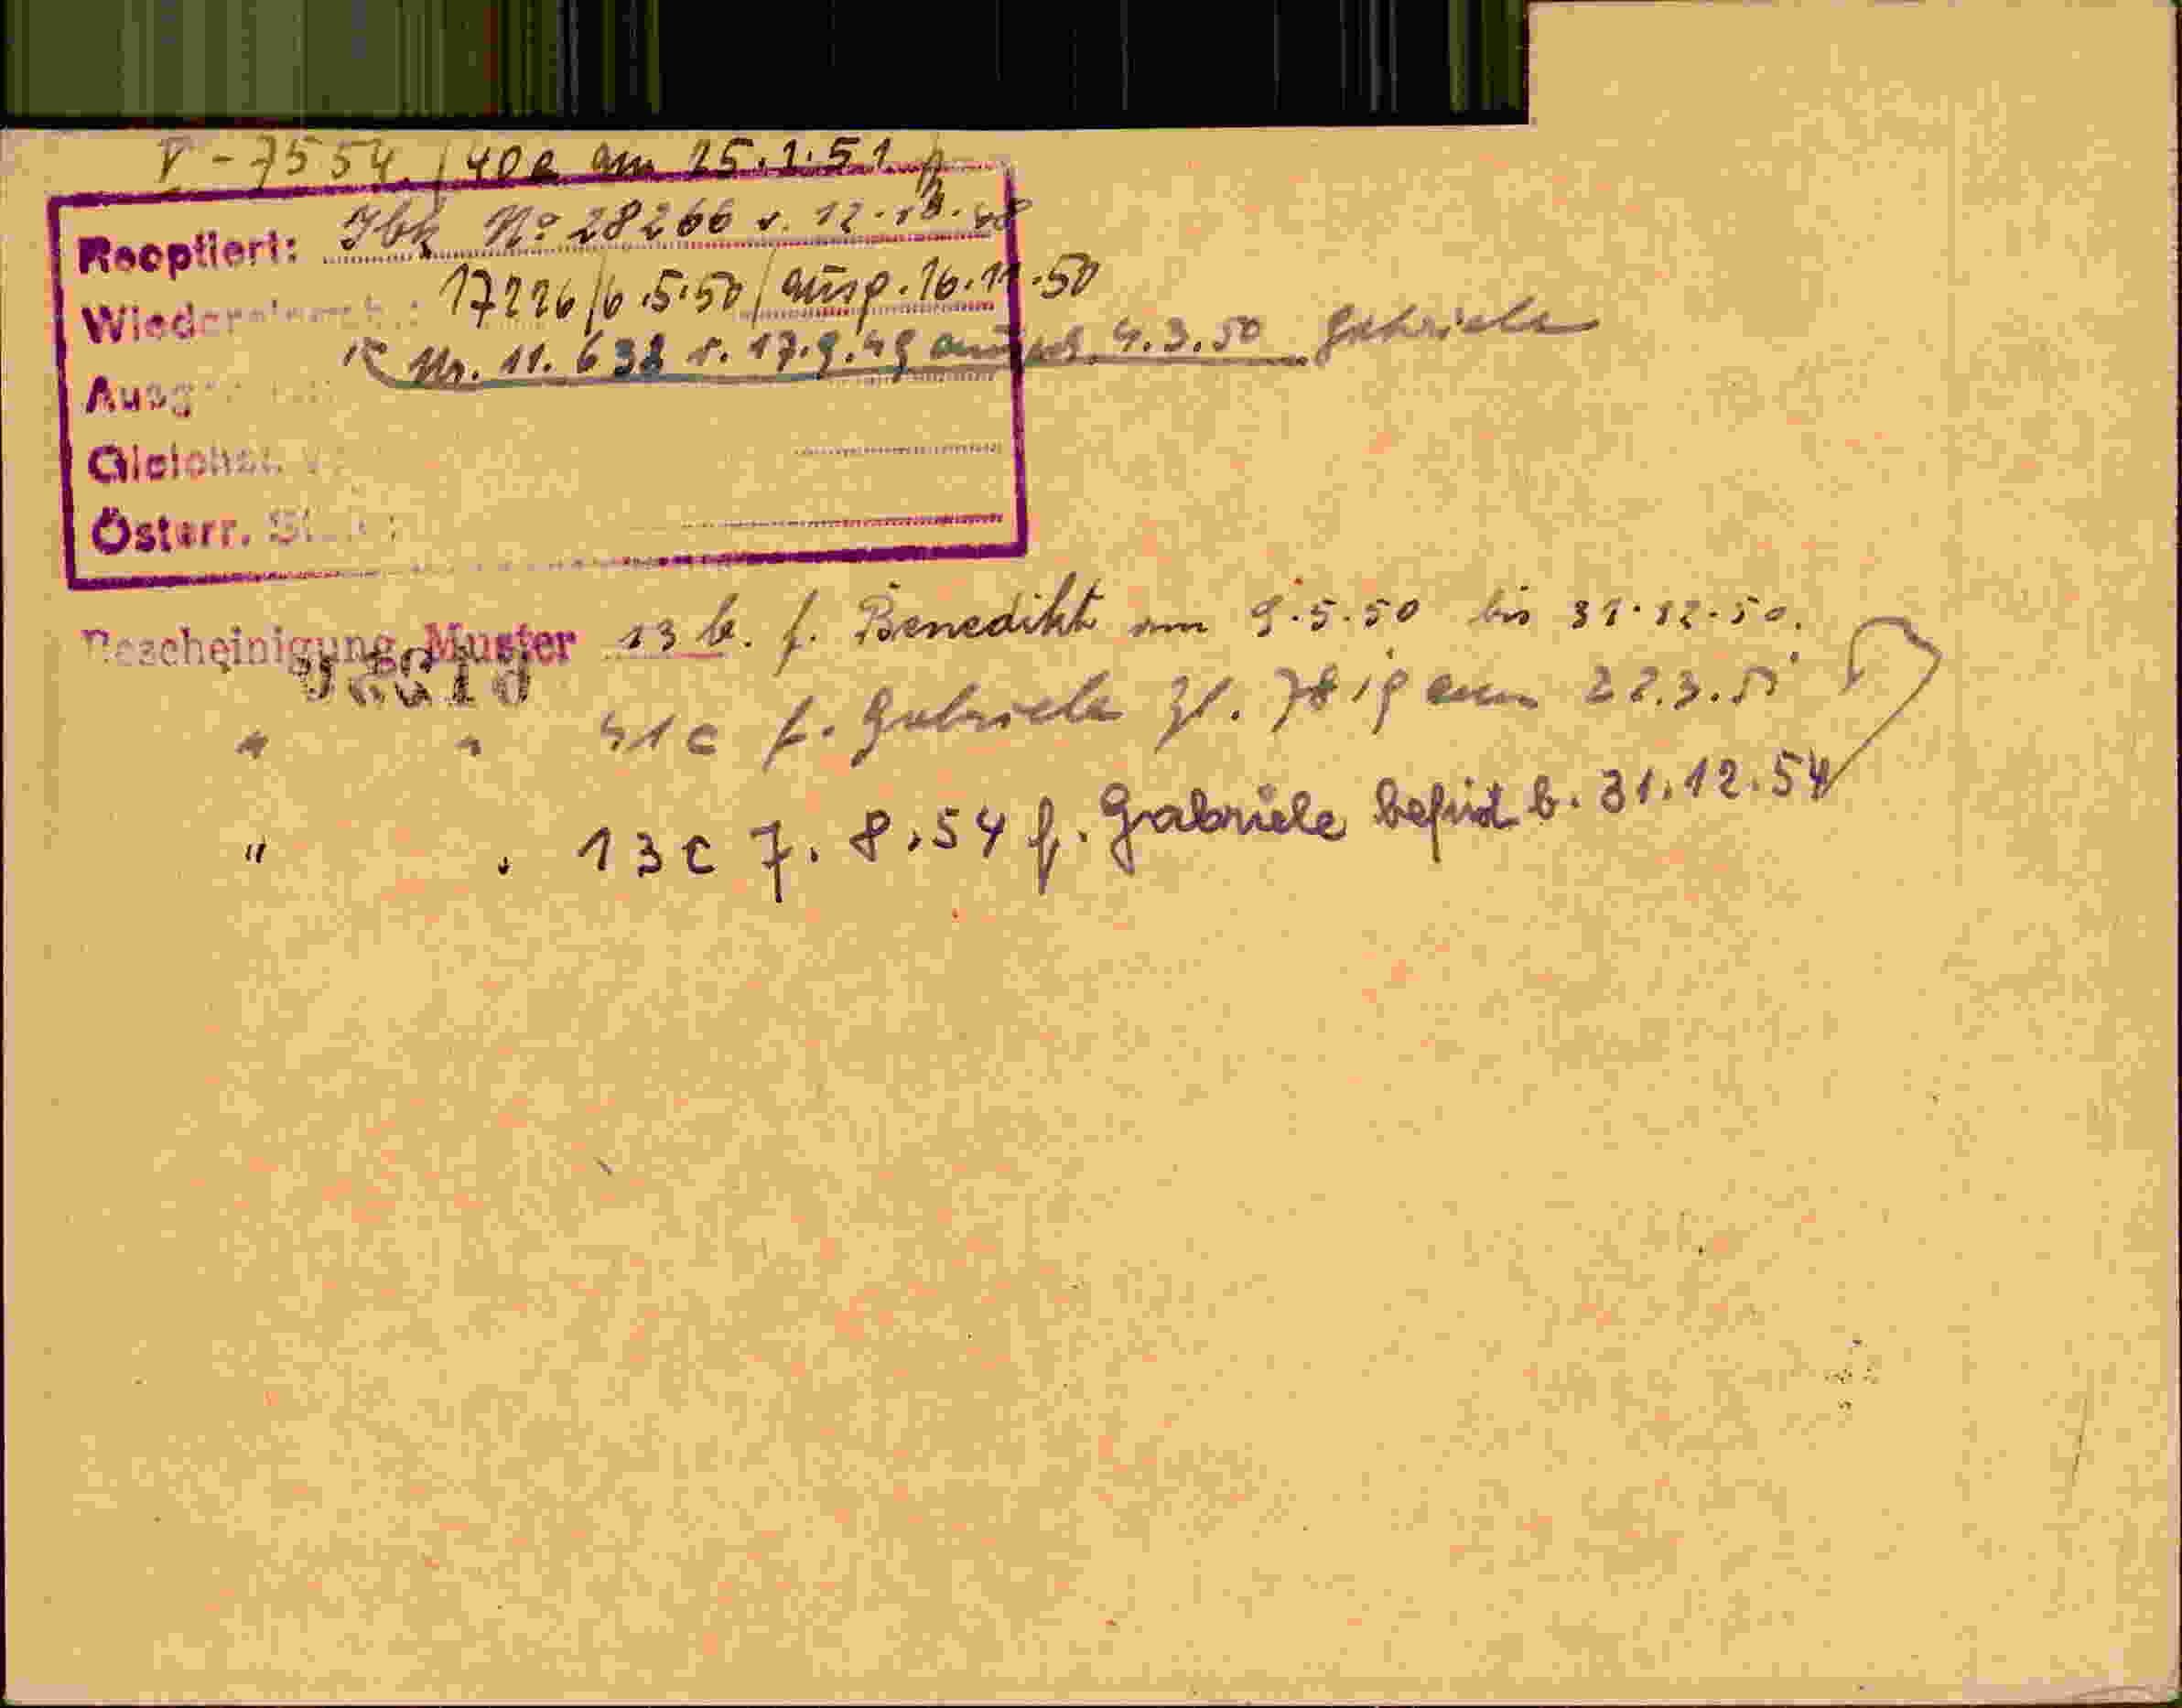 V - 7554. / 40 e am 25.1.51
Reoptiert: Ibk No 28266 v. 12.10.48
17226/6.5.50/ausg. 16.11.50
Nr. 11.638 v. 17.9.49 4.3.50 Gabriele
Gleichst.
Österr.
Bescheinigung Muster 13 b. f. Benedikt am 9.5.50 bis 31.12.50.
" " 41c f. Gabriele Zl. am 22.3.51
" " 13c 7.8.54 f. Gabriele b. 31.12.54